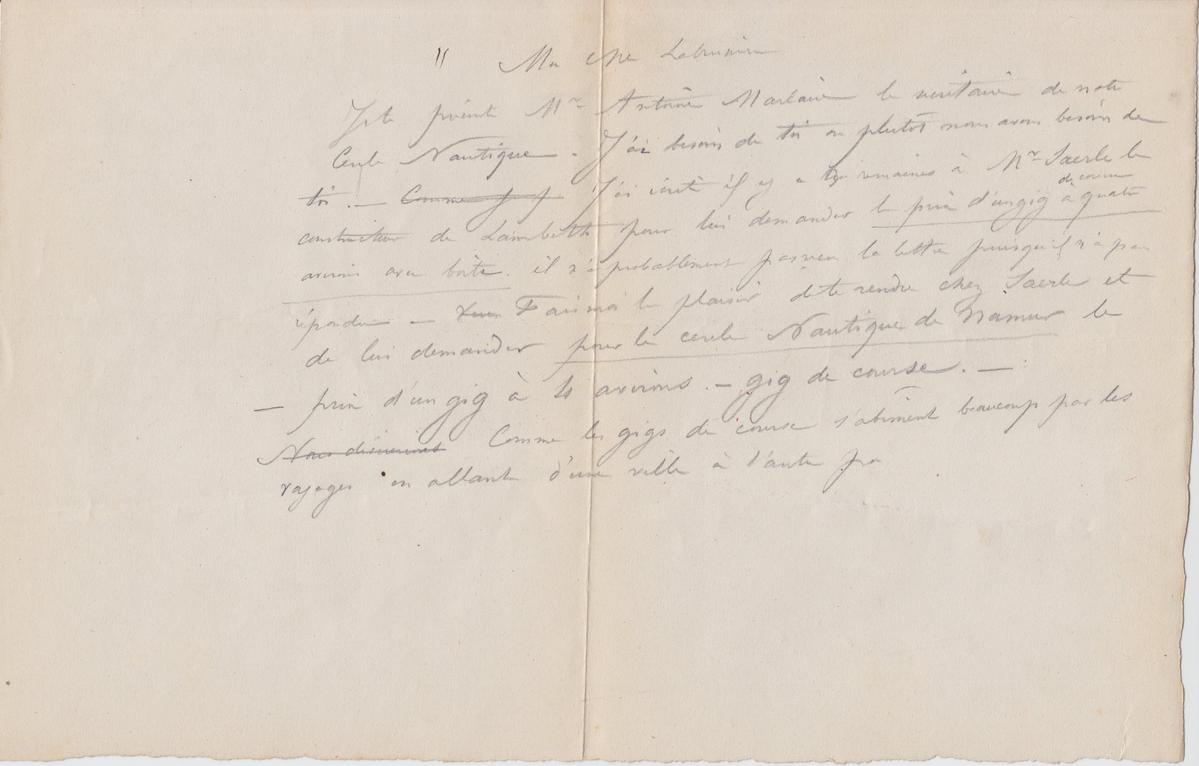 " Mon cher Labruninin
Je te présente Mr Antoine Marlaire le secrétaire de notre
Cercle Nautique. J'ai besoin de toi ou plutôt nous avons besoin de
toi. — Comme J'ai écrit il y a trois semaines à Mr Saerle le
constructeur de Lambeth pour lui demander le prix d'un gig de course à quatre
avirons avec boîte. il n'a probablement pas reçu la lettre puisqu'il n'a pas
répondu — Fais moi le plaisir de te rendre chez Saerle et
de lui demander pour le cercle Nautique de Namur le
— prix d'un gig à 4 avirons. — gig de course. —
Nous désirerions Comme les gigs de course s'abîment beaucoup par les
voyages en allant d'une ville à l'autre